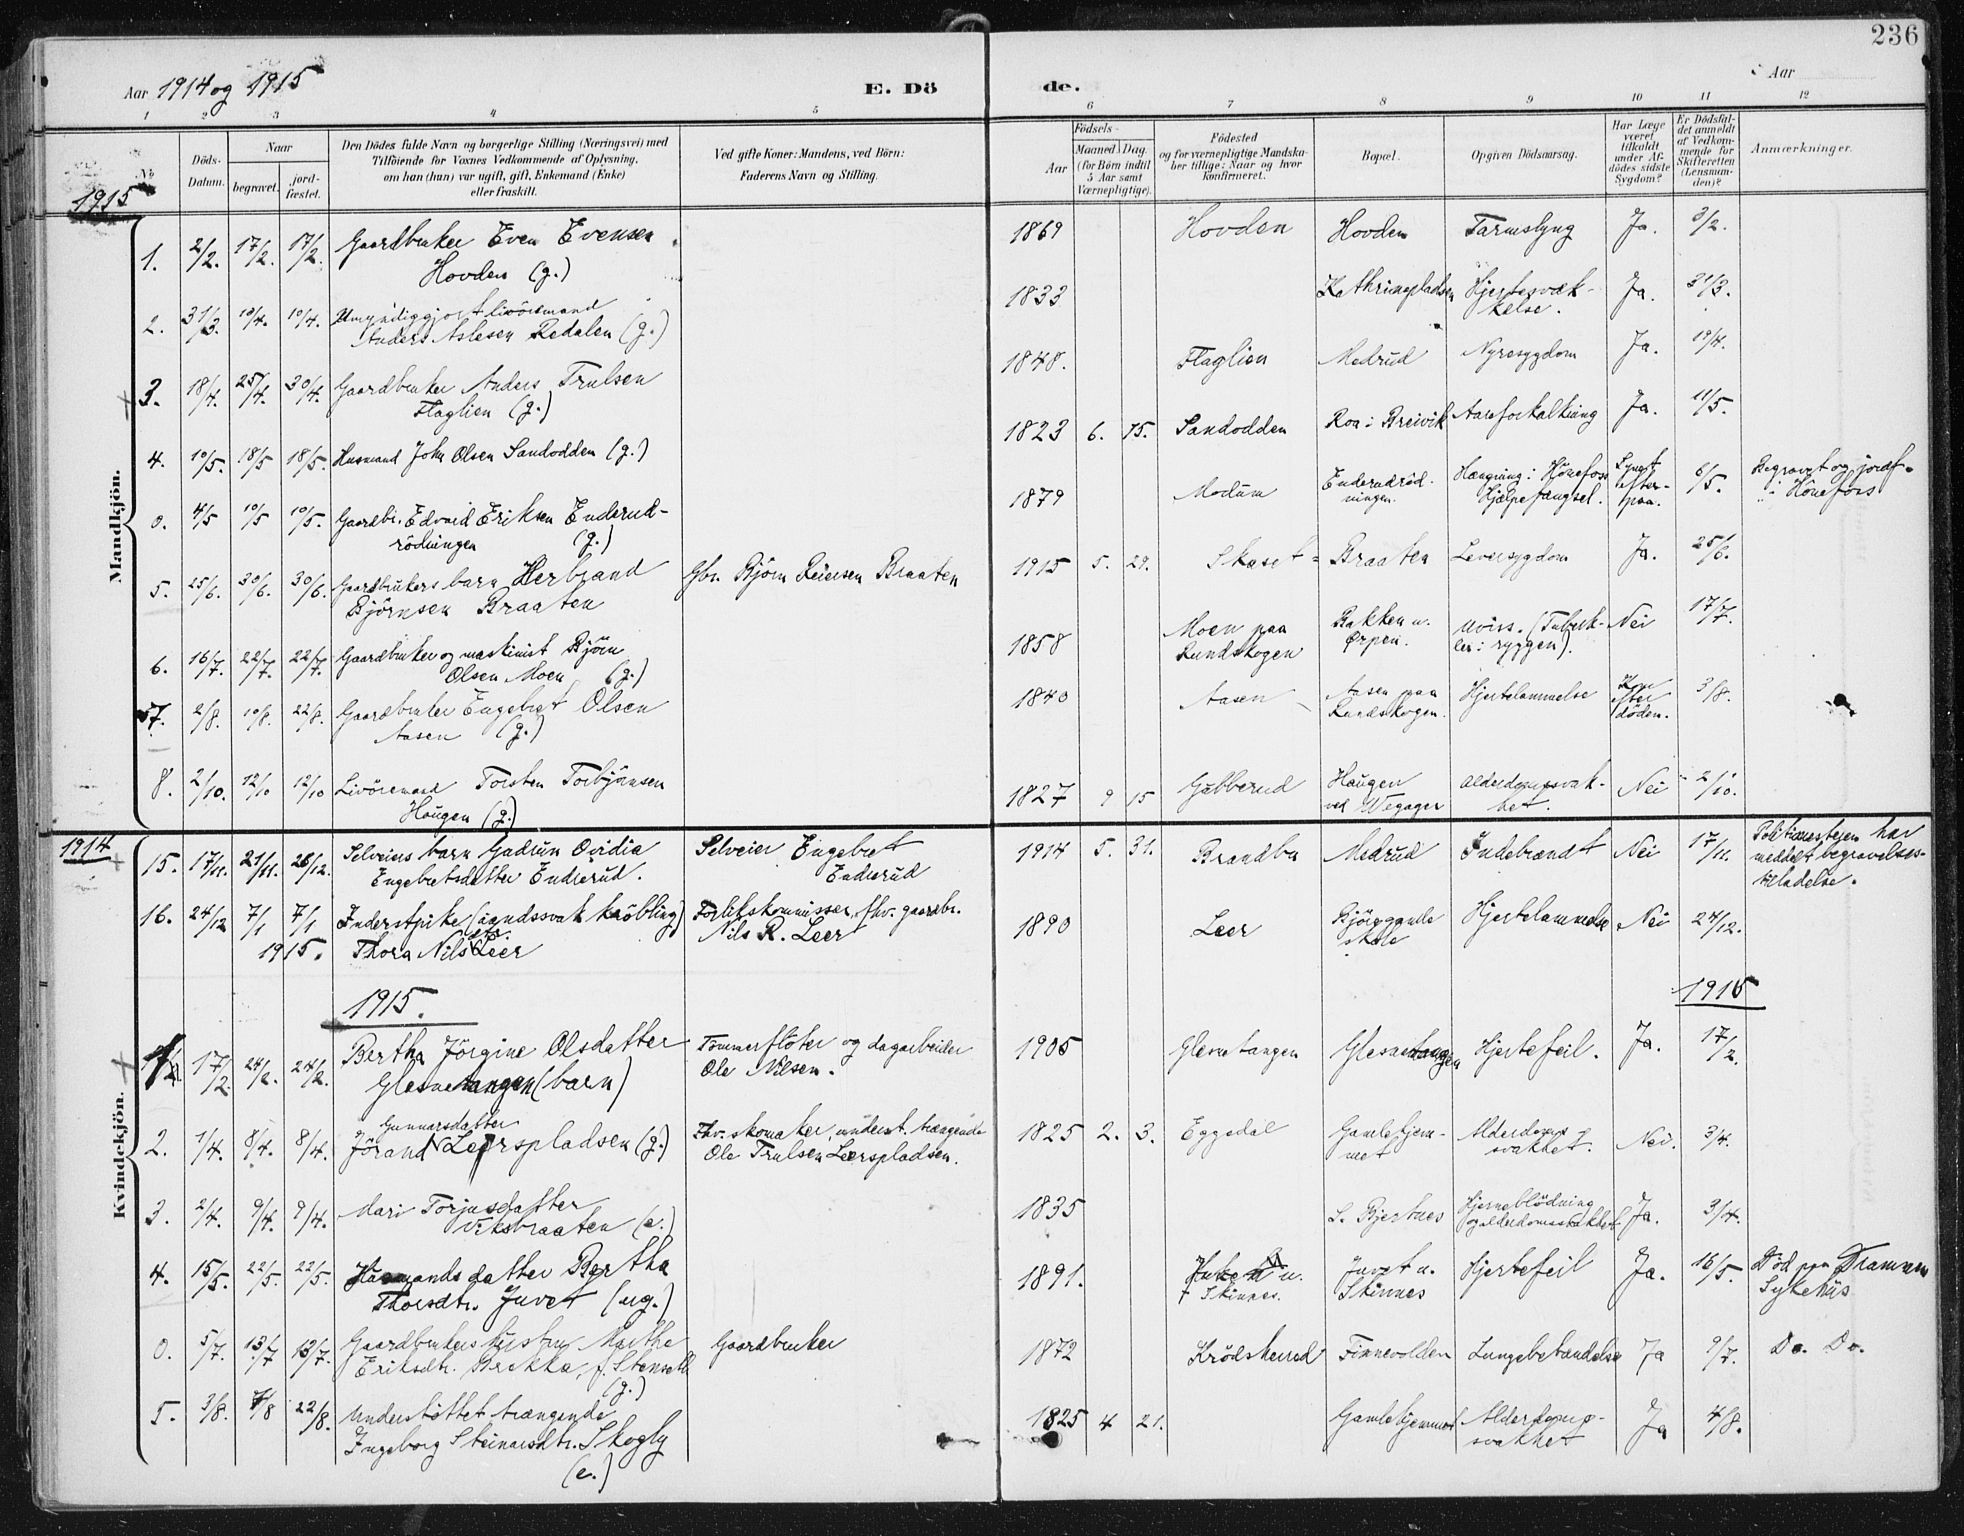 236
Aar 1914 og 1915
E. Dö
de.
Aar
1 2 3 4 5 6 7 8 9 10 11 12
No
Döds-Datum.
Naar
begravet.
jord-fæstet.
Den Dödes fulde Navn og borgerlige Stilling (Næringsvei) med
Tilföiende for Voxnes Vedkommende af Oplysning,
om han (hun) var ugift, gift, Enkemand (Enke)
eller fraskilt.
Ved gifte Koner: Mandens, ved Börn:
Faderens Navn og Stilling.
Födsels-
Aar
Maaned. Dag.
(for Börn indtil
5 Aar samt
Værnepligtige).
Födested
og for værnepligtige Mandska-
ber tillige: Naar og hvor
konfirmeret.
Bopæl.
Opgiven Dödsaarsag.
Har Læge
været
tilkaldt
under Af-
dödes sidste
Sygdom?
Er Dödsfal-
det anmeldt
af Vedkom-
mende for
Skifteretten
(Lensman-
den)?
Anmærkninger.
1915
Mandkjön.
1. 2/2. 17/2. 17/2. Gaardbruker Even Evensen
Hovden (g.)
1869 Hovden Hovden Tarmslyng Ja. 3/2.
2. 31/3. 10/4. 10/4. Umyndiggjort livöresmand
Anders Aslesen Redalen (g.)
1833 Kathrinepladsen Hjertesvæk-
kelse. Ja. 31/3.
3. 18/4. 25/4. 30/4. Gaardbruker Anders Trulsen
Flaglien (g.)
1848. Flaglien Medrud Nyresygdom Ja. 19/4.
4. 10/5. 18/5 18/5. Husmand John Olsen Sandodden (g.)
1823 6. 15. Sandodden Roa i Breivik Aareforkalkning Ja. 11/5.
0. 4/5 10/5 10/5. Gaardbr. Edvard Eriksen Enderud-
rödningen (g.)
1879 Modum Enderudröd-
ningen. Hængning i Hönefoss
Hjælpefængsel. Synet
efter-
paa. 6/5. Begravet og jordf.
i Hönefoss
5. 25/6. 30/6. 30/6. Gaardbrukers barn Herbrand
Björnsen Braaten
Gbr. Björn Reiersen Braaten
1915 5. 29. Skaset- Braaten Leversygdom Ja. 25/6.
6. 16/7. 22/7. 22/7. Gaardbruker og maskinist Björn
Olsen Moen (g.)
1858 Moen paa
Rundskogen Bakken u.
Ørpen. Uviss. (Tuberk-
ler i ryggen). Nei 17/7.
7. 2/8. 10/8. 22/8. Gaardbruker Engebret Olsen
Aasen (g.)
1840 Aasen Aasen paa
Rundskogen. Hjertelammelse Kom
efter
döden. 3/8.
8. 2/10. 12/10 12/10 Livöresmand Torsten Torbjörnsen
Haugen (g.)
1827 9 15 Gubberud Haugen
ved Wegager Alderdomssvak-
het. Nei 2/10.
1914
Kvindekjön.
15. 17/11. 21/11. 26/12. Selveiers barn Gudrun Ovidia
Engebretsdatter Enderud.
Selveier Engebret
Enderud
1914 5. 31. Brandbu Medrud Indebrændt Nei 17/11. Politimesteren har
meddelt begravelses-
tilladelse.
16. 24/12 7/1 7/1 Inderstpike (aandssvak kröbling)
1915. Thora Nilsdtr. Leer
Forlikskommisær, fhv. gaardbr.
Nils R. Leer
1890 Leer
skole Hjertelammelse Nei 24/12.
1915.
1915
17/2. 24/2. 24/2. Bertha Jörgine Olsdatter
Glesnetangen (barn)
Tömmerflöter og dagarbeider
Ole Nilsen.
1905 Glesnetangen Glesnetangen Hjertefeil. Ja. 17/2.
2. 1/4. 8/4. 8/4. Jörand Gunnarsdatter Leerspladsen (g.)
Fhv. skomaker, underst. trængende
Ole Trulsen Leerspladsen.
1825 2. 3. Eggedal Gamlehjem-
met Alderdoms-
svakhet. Nei. 3/4.
3. 2/4. 9/4. 9/4. Mari Torjusdatter
Viksbraaten (e.)
1835 S. Bjertnes Hjerneblödning
og alderdomssvakhet Ja. 3/4.
4. 15/5. 22/5. 22/5. Husmandsdatter Bertha
Thorsdtr. Juvet (ug.)
1891. u.
Skinnes. Juvet u.
Skinnes Hjertefeil Ja. 16/5. Död paa Drammen
Sykehus
0. 5/7. 13/7 13/7. Gaardbrukers hustru Marthe
Eriksdtr. (g.)
Gaardbruker
1872 Krödsherred Finnevolden Lungebetændelse Ja 9/7. Do. Do.
5. 3/8. 7/8 22/8. Understöttet trængende
Ingeborg Steinarsdtr. Skogly
(e.)
1825 4 21. Gamlehjemmet Alderdoms-
svakhet Ja 4/8.